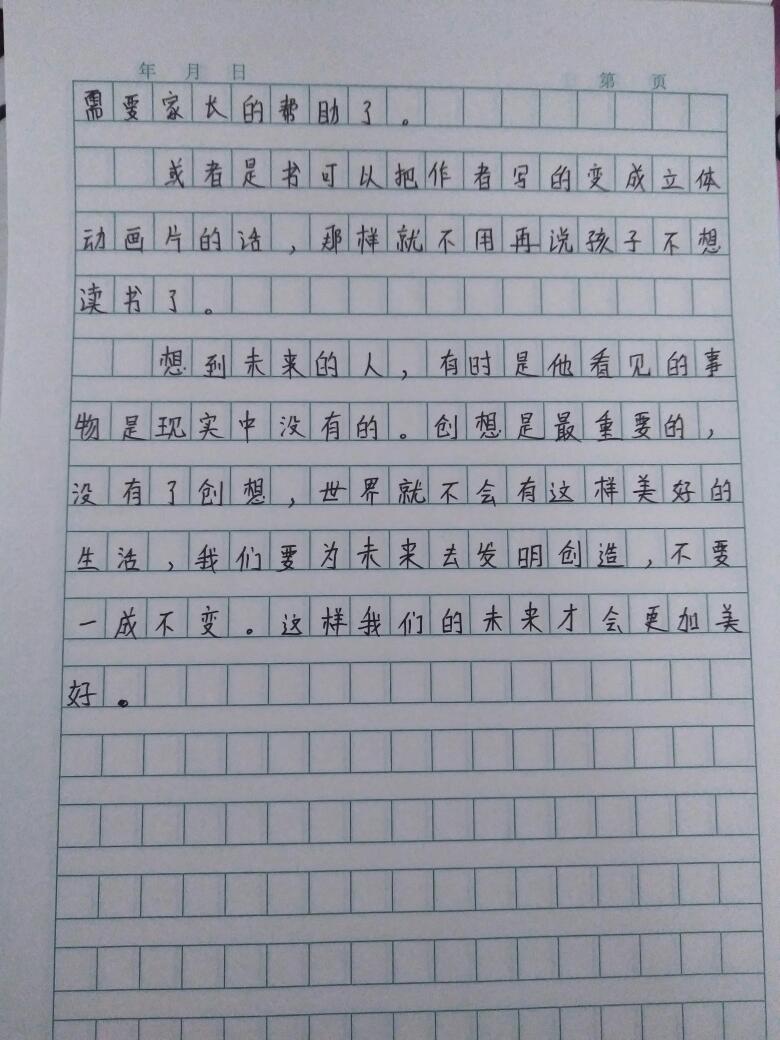 年 月 日 第 页
需要家长的帮助了。
或者是书可以把作者写的变成立体
动画片的话，那样就不用再说孩子不想
读书了。
想到未来的人，有时是他看见的事
物是现实中没有的。创想是最重要的，
没有了创想，世界就不会有这样美好的
生活，我们要为未来去发明创造，不要
一成不变。这样我们的未来才会更加美
好。